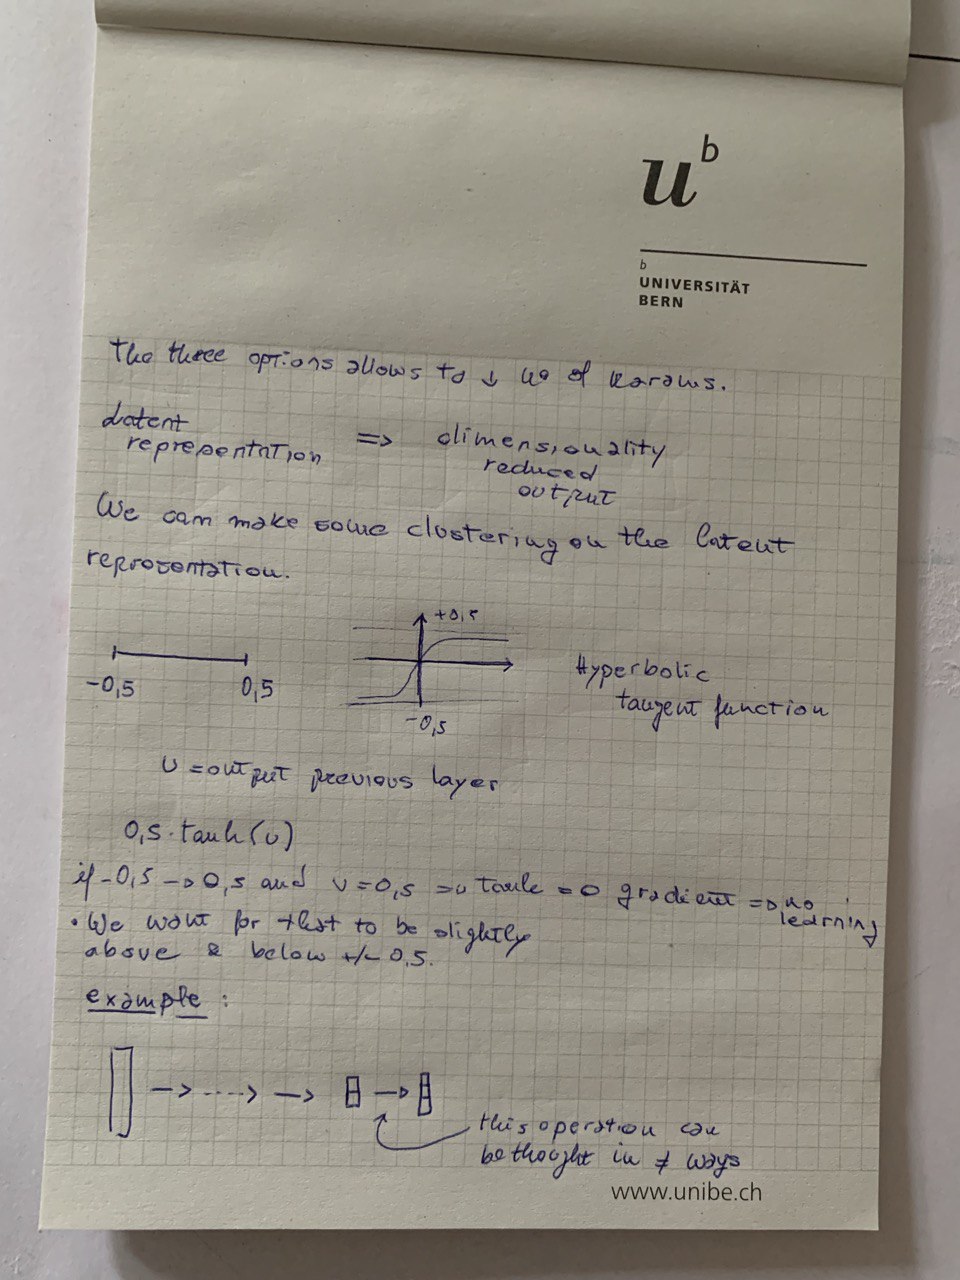 u b
b
UNIVERSITÄT
BERN
The three options allows to ↓ nº of params.
Latent
representation => dimensionality
reduced
output
We can make some clustering on the latent
representation.
+0,5
-0,5 0,5
-0,5
Hyperbolic
tangent function
U = output previous layer
0,5 · tanh(U)
if -0,5 -> 0,5 and U = 0,5 => tanh = 0 gradient => no
learning
• We want for that to be slightly
above & below +/- 0.5.
example :
this operation can
be thought in ≠ ways
www.unibe.ch